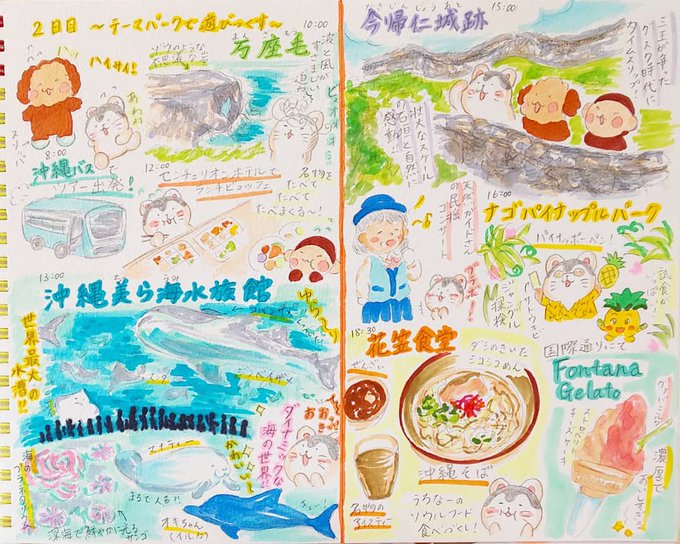 2日目 ～テーマパークで遊びつくす～
ハイサイ!
8:00
沖縄バス
ツアー出発!
10:00
万座毛
まんざもう
波と風が
すさまじい
12:00
センチュリオンホテルで
ランチビュッフェ
名物を
たべて
たべて
たべまくる～!
13:00
沖縄美ら海水族館
ちゅうみ
世界最大の
水槽!!
ゆら～り
ジンベイザメ
マンタ
ダイナミックな
海の世界
マナティー
かわいい
まるで人魚?!
海の
プラネタリウム
深海で鮮やかに光る
サンゴ
オキちゃん
(イルカ)
15:00
今帰仁城跡
きじんじょう
三王が争った
グスク時代に
タイムスリップ!
壮大なスケール
の石垣と自然に
感動!
天然ガイドさん
の民謡
コンサート
ブラボー!
16:00
ナゴパイナップルパーク
パイナッポーペン!
ジャングル
探検
試食が
18:30
花笠食堂
ぜんざい
ダシのきいた
シコシコめん
沖縄そば
うちなーの
ソウルフード
食べづくし!
名物の
アイスティー
国際通りにて
Fontana
Gelato
チーズケーキ
濃厚で
おいしすぎる